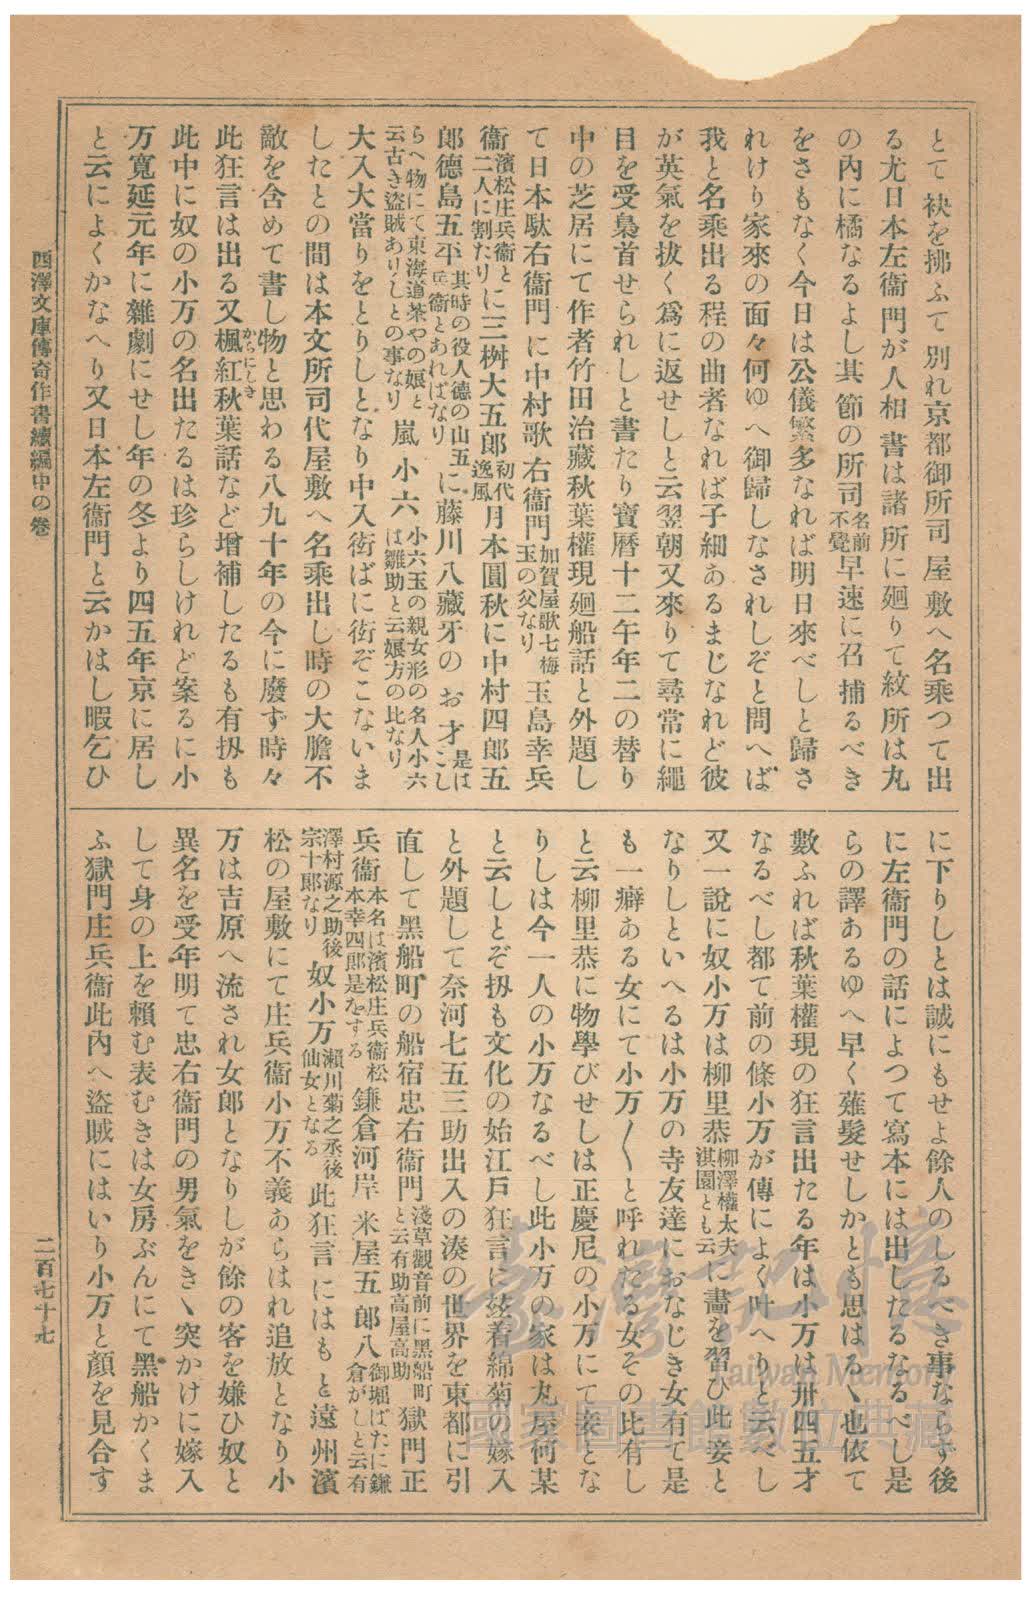 とて袂を拂ふて別れ京都御所司屋敷へ名乘つて出
る尤日本左衞門が人相書は諸所に廻りて紋所は丸
の內に橘なるよし其節の所司名前不覺早速に召捕るべき
をさもなく今日は公儀繁多なれば明日來べしと歸さ
れけり家來の面々何ゆへ御歸しなされしぞと問へば
我と名乘出る程の曲者なれば子細あるまじなれど彼
が英氣を拔く爲に返せしと云翌朝又來りて尋常に繩
目を受梟首せられしと書たり寶曆十二午年二の替り
中の芝居にて作者竹田治藏秋葉權現廻船話と外題し
て日本駄右衞門に中村歌右衞門加賀屋歌七梅玉の父なり玉島幸兵
衞濱松庄兵衞と二人に割たりに三桝大五郎初代逸風月本圓秋に中村四郎五
郎德島五平其時の役人德の山五兵衞とあればなりに藤川八藏牙のお才是はこし
らへ物にて東海道茶やの娘と云古き盜賊ありしとの事なり嵐小六小六玉の親女形の名人小六は雛助と云娘方の比なり
大入大當りをとりしとなり中入街ばに街ぞこないま
したとの間は本文所司代屋敷へ名乘出し時の大膽不
敵を含めて書し物と思わる八九十年の今に廢ず時々
此狂言は出る又楓紅からにしき秋葉話など增補したるも有扨も
此中に奴の小万の名出たるは珍らしけれど案るに小
万寬延元年に雜劇にせし年の冬より四五年京に居し
と云によくかなへり又日本左衞門と云かはし暇乞ひ
に下りしとは誠にもせよ餘人のしるべき事ならず後
に左衞門の話によつて寫本には出したるなるべし是
らの譯あるゆへ早く薙髮せしかとも思はるゝ也依て
數ふれば秋葉權現の狂言出たる年は小万は卅四五才
なるべし都て前の條小万が傳によく叶へりと云べし
又一說に奴小万は柳里恭柳澤權太夫淇園とも云に畵を習ひ此妾と
なりしといへるは小万の寺友達におなじき女有て是
も一癖ある女にて小万〳〵と呼れたる女その比有し
と云柳里恭に物學びせしは正慶尼の小万にて妾とな
りしは今一人の小万なるべし此小万の家は丸屋何某
と云しとぞ扨も文化の始江戶狂言に玆着綿菊の嫁入
と外題して奈河七五三助出入の湊の世界を東都に引
直して黑船町の船宿忠右衞門淺草觀音前に黑船町と云有助高屋高助獄門正
兵衞本名は濱松庄兵衞松本幸四郞是をする鎌倉河岸米屋五郎八御堀ばたに鎌倉がしと云有
澤村源之助後宗十郞なり奴小万瀨川菊之丞後仙女となる此狂言にはもと遠州濱
松の屋敷にて庄兵衞小万不義あらはれ追放となり小
万は吉原へ流され女郎となりしが餘の客を嫌ひ奴と
異名を受年明て忠右衞門の男氣をきゝ突かけに嫁入
して身の上を賴む表むきは女房ぶんにて黑船かくま
ふ獄門庄兵衞此內へ盜賊にはいり小万と顏を見合す
西澤文庫傳奇作書續編中の卷
二百七十七
臺灣記憶
Taiwan Memory
國家圖書館數位典藏